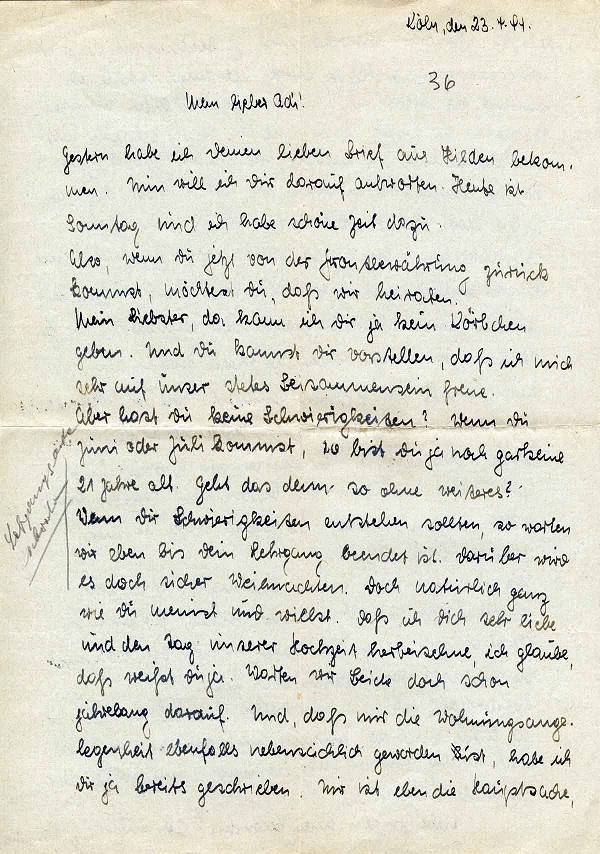 Köln, den 23.4.44.
36
Mein lieber Adi!
Gestern habe ich deinen lieben Brief aus Hilden bekom-
men. Nun will ich dir darauf antworten. Heute ist
Sonntag und ich habe schöne Zeit dazu.
Also, wenn du jetzt von der Frontbewährung zurück
kommst, möchtest du, daß wir heiraten.
Mein Liebster, da kann ich dir ja kein Körbchen
geben. Und du kannst dir vorstellen, daß ich mich
sehr auf unser stetes Beisammensein freue.
Aber hast du keine Schwierigkeiten? Wenn du
Juni oder Juli kommst, so bist du ja noch gar keine
21 Jahre alt. Geht das denn so ohne weiteres?
Wenn dir Schwierigkeiten entstehen sollten, so warten
wir eben bis dein Lehrgang beendet ist. Darüber wird
es doch sicher Weihnachten. Doch natürlich ganz
wie du meinst und willst. Daß ich dich sehr liebe
und den Tag unserer Hochzeit herbeisehne, ich glaube,
daß weißt du ja. Warten wir beide doch schon
jahrelang darauf. Und, daß mir die Wohnungsange-
legenheit ebenfalls nebensächlich geworden ist, habe ich
dir ja bereits geschrieben. Mir ist eben die Hauptsache,